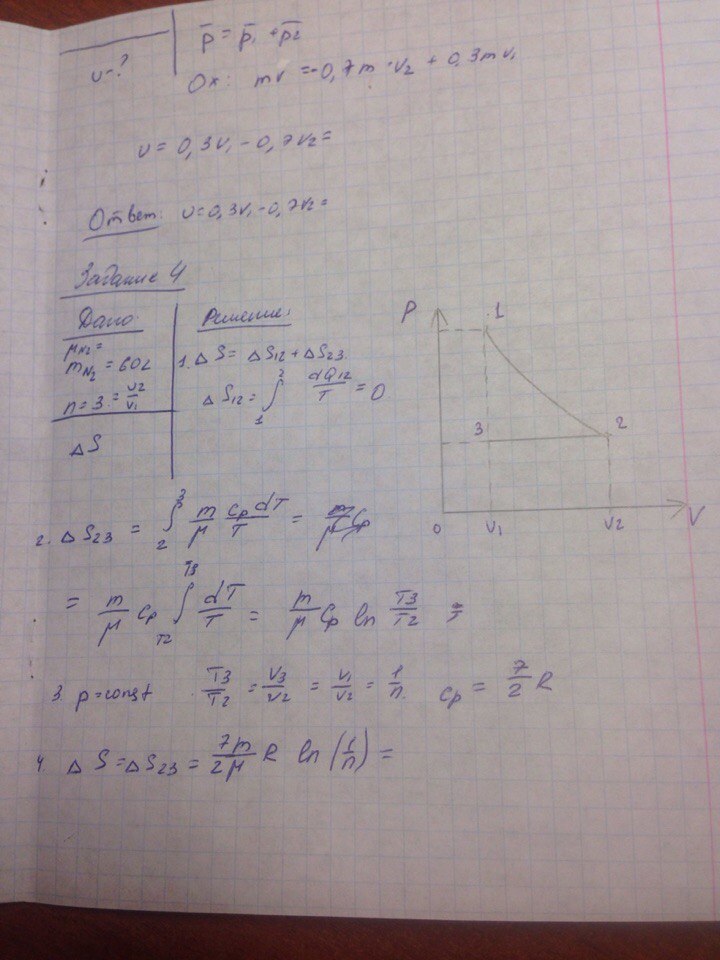 p̄ = p̄₁ + p̄₂
υ-?
Ox: mv = -0,7m·v₂ + 0,3mv₁
υ = 0,3v₁ - 0,7v₂ =
Ответ: υ = 0,3v₁ - 0,7v₂ =
Задание 4
Дано:
μN₂ =
mN₂ = 60г
n = 3 = v₂/v₁
ΔS
Решение:
1. ΔS = ΔS₁₂ + ΔS₂₃
ΔS₁₂ = ∫₁² dQ₁₂/T = 0
P
1
3
2
0
V₁
V₂
V
2. ΔS₂₃ = ∫₂³ m/μ Cp dT/T = m/μ Cp
= m/μ Cp ∫_T2^T3 dT/T = m/μ Cp ln T3/T2 =
3. p=const T3/T2 = V3/V2 = V1/V2 = 1/n. Cp = 7/2 R
4. ΔS = ΔS₂₃ = 7m/2μ R ln(1/n) =